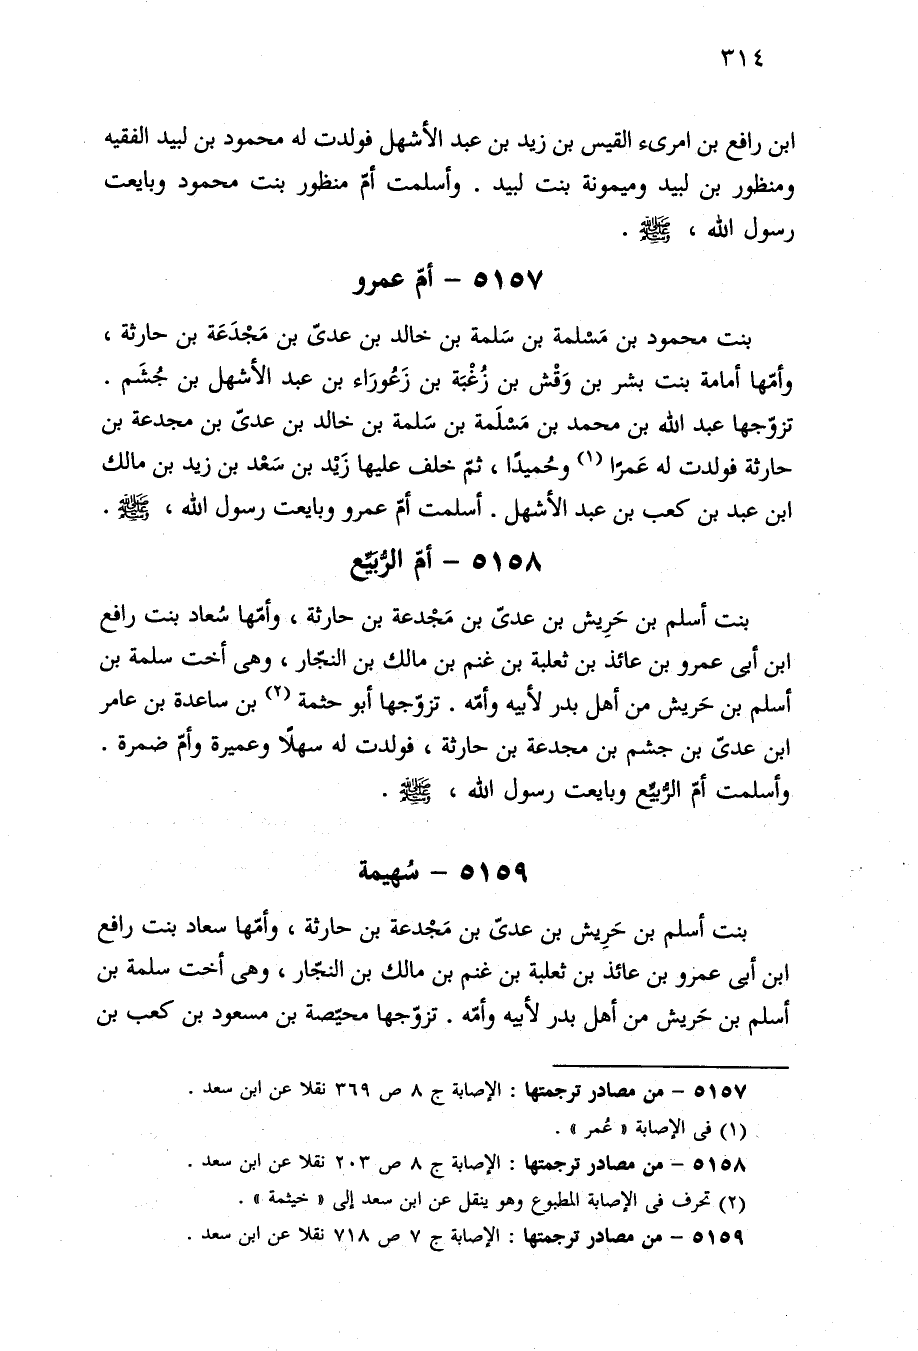 ٣١٤
ابن رافع بن امرىء القيس بن زيد بن عبد الأشهل فولدت له محمود بن لبيد الفقيه
ومنظور بن لبيد وميمونة بنت لبيد . وأسلمت أمّ منظور بنت محمود وبايعت
رسول الله ، ﷺ .
٥١٥٧ – أمّ عمرو
بنت محمود بن مَسْلمة بن سَلمة بن خالد بن عدىّ بن مَجْدَعَة بن حارثة ،
وأمّها أمامة بنت بشر بن وَقْش بن زُغْبَة بن زَعُورَاء بن عبد الأشهل بن جُشَم .
تزوّجها عبد الله بن محمد بن مَسْلَمة بن سَلمة بن خالد بن عدىّ بن مجدعة بن
حارثة فولدت له عَمرًا (١) وحُميدًا ، ثمّ خلف عليها زَيْد بن سَعْد بن زيد بن مالك
ابن عبد بن كعب بن عبد الأشهل . أسلمت أمّ عمرو وبايعت رسول الله ، ﷺ .
٥١٥٨ – أمّ الرُّبَيِّع
بنت أسلم بن حَرِيش بن عدىّ بن مَجْدعة بن حارثة ، وأمّها سُعاد بنت رافع
ابن أبى عمرو بن عائذ بن ثعلبة بن غنم بن مالك بن النجّار ، وهى أخت سلمة بن
أسلم بن حَريش من أهل بدر لأبيه وأمّه . تزوّجها أبو حثمة (٢) بن ساعدة بن عامر
ابن عدىّ بن جشم بن مجدعة بن حارثة ، فولدت له سهلًا وعميرة وأمّ ضمرة .
وأسلمت أمّ الرُّبيِّع وبايعت رسول الله ، ﷺ .
٥١٥٩ – سُهيمة
بنت أسلم بن حَرِيش بن عدىّ بن مَجْدعة بن حارثة ، وأمّها سعاد بنت رافع
ابن أبى عمرو بن عائذ بن ثعلبة بن غنم بن مالك بن النجّار ، وهى أخت سلمة بن
أسلم بن حَريش من أهل بدر لأبيه وأمّه . تزوّجها محيّصة بن مسعود بن كعب بن
٥١٥٧ – من مصادر ترجمتها : الإصابة ج ٨ ص ٣٦٩ نقلا عن ابن سعد .
(١) فى الإصابة « عُمر » .
٥١٥٨ – من مصادر ترجمتها : الإصابة ج ٨ ص ٢٠٣ نقلا عن ابن سعد .
(٢) تحرف فى الإصابة المطبوع وهو ينقل عن ابن سعد إلى « خيثمة » .
٥١٥٩ – من مصادر ترجمتها : الإصابة ج ٧ ص ٧١٨ نقلا عن ابن سعد .